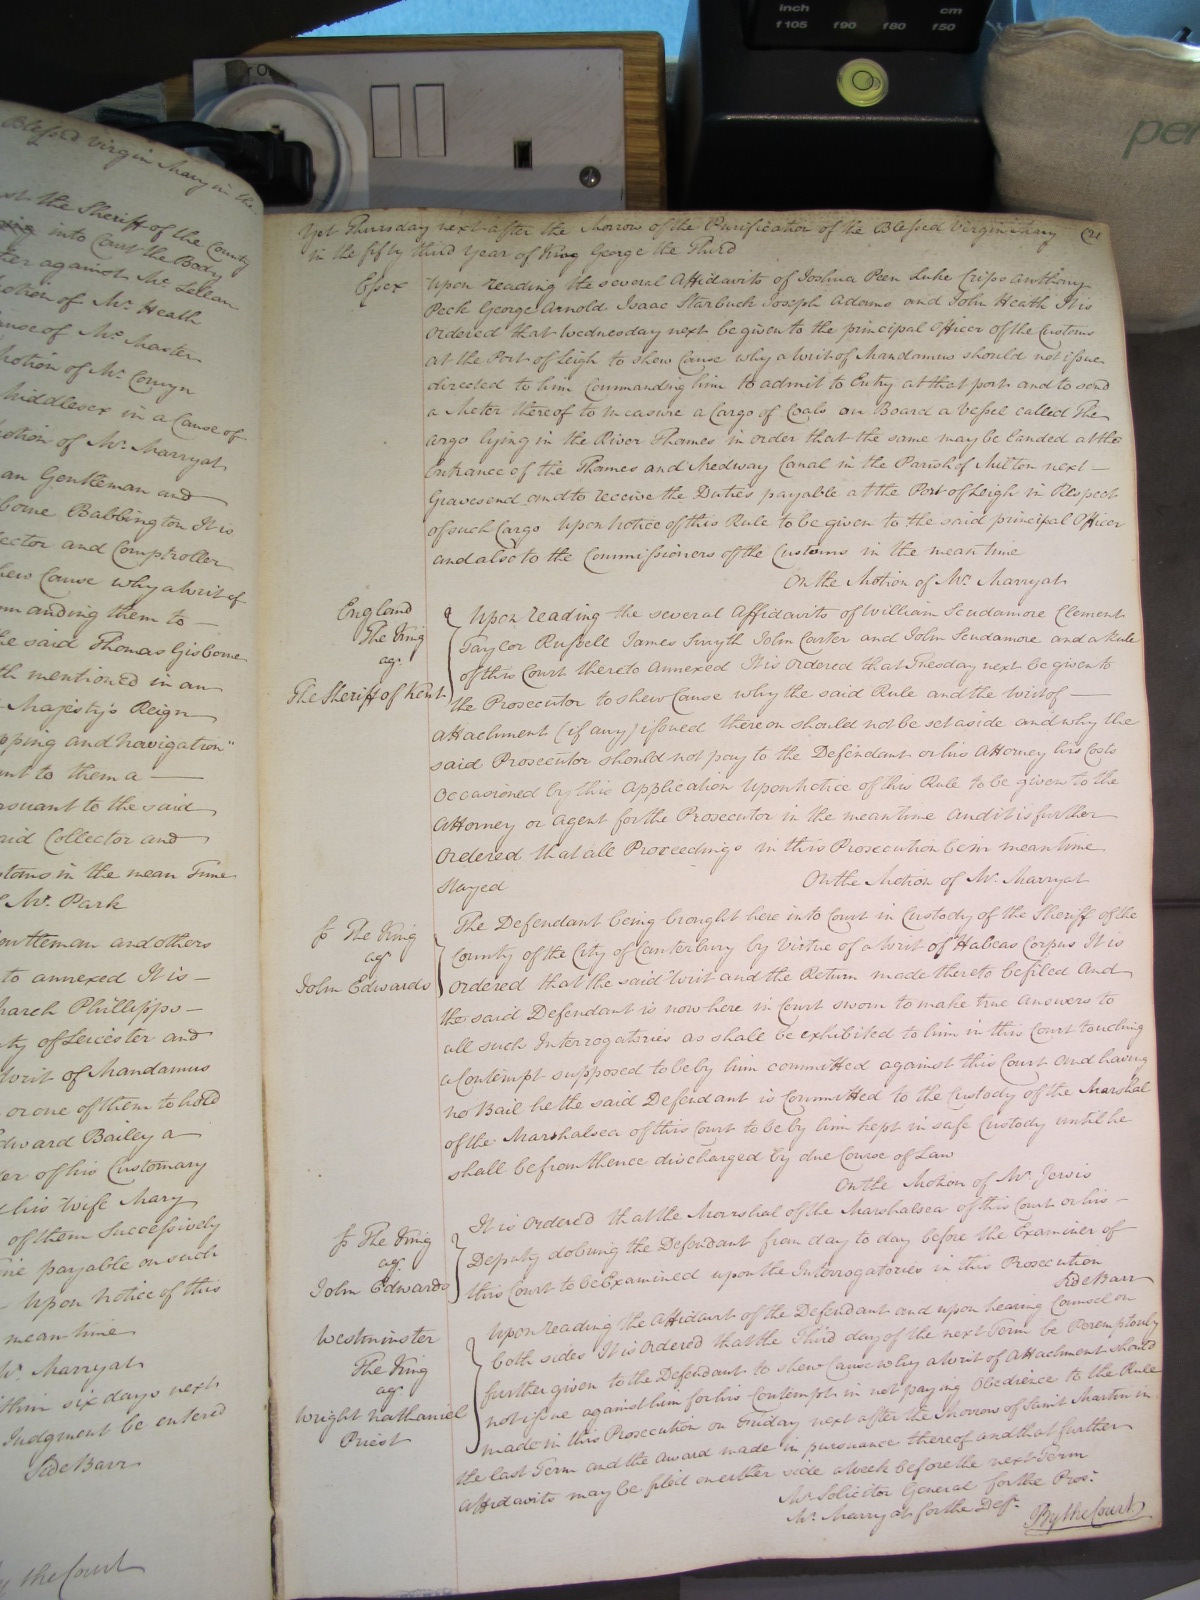 inch
cm
f105 f90 f80 f50
per
Blessed Virgin Mary in the
the Sheriff of the County
into Court the Body
against Mc Lellan
Motion of Mr. Heath
Cause of Mc Master
Motion of Mr. Comyn
Middlesex in a Cause of
Motion of Mr. Marryat
an Gentleman and
borne Babbington It is
and Comptroller
shew Cause why a Writ of
manding them to —
the said Thomas Gisborne
mentioned in an
Majesty's Reign
and Navigation"
to them a —
pursuant to the said
said Collector and
in the mean Time
Mr. Park
Gentleman and others
to annexed It is —
March Phillipps —
of Leicester and
Writ of Mandamus
or one of them to hold
Edward Bailey a
of his Customary
his Wife Mary
of them Successively
payable on such
Upon Notice of this
mean time
Mr. Marryat
within six days next
Judgment be entered
Side Barr
By the Court
Yet Thursday next after the Morrow of the Purification of the Blessed Virgin Mary
in the fifty third Year of King George the Third
Essex Upon reading the several Affidavits of Joshua Peen Luke Cripps Anthony
Peck George Arnold Isaac Starbuck Joseph Adams and John Heath It is
Ordered that Wednesday next be given to the principal Officer of the Customs
at the Port of Leigh to shew Cause why a Writ of Mandamus should not issue
directed to him Commanding him to admit to Entry at that port and to send
a Meter thereof to measure a Cargo of Coals on Board a Vessel called The
Argo lying in the River Thames in order that the same may be landed at the
Entrance of the Thames and Medway Canal in the Parish of Milton next —
Gravesend and to receive the Duties payable at the Port of Leigh in Respect
of such Cargo Upon Notice of this Rule to be given to the said principal Officer
and also to the Commissioners of the Customs in the mean time
On the Motion of Mr. Marryat
England
The King
agt.
The Sheriff of Kent
Upon reading the several Affidavits of William Scudamore Clement
Taylor Russell James Smyth John Carter and John Scudamore and a Rule
of this Court thereto annexed It is ordered that Tuesday next be given to
the Prosecutor to shew Cause why the said Rule and the Writ of —
Attachment (if any) issued thereon should not be set aside and why the
said Prosecutor should not pay to the Defendant or his Attorney his Costs
Occasioned by this Application Upon Notice of this Rule to be given to the
Attorney or Agent for the Prosecutor in the mean time And it is further
Ordered that all Proceedings in this Prosecution be in mean time
Stayed On the Motion of Mr. Marryat
The King
agt.
John Edwards
The Defendant being brought here into Court in Custody of the Sheriff of the
County of the City of Canterbury by Virtue of a Writ of Habeas Corpus It is
Ordered that the said Writ and the Return made thereto be filed And
the said Defendant is now here in Court sworn to make true answers to
all such Interrogatories as shall be exhibited to him in this Court touching
a Contempt supposed to be by him committed against this Court And having
no Bail he the said Defendant is Committed to the Custody of the Marshal
of the Marshalsea of this Court to be by him kept in safe Custody until he
shall be from thence discharged by due Course of Law
On the Motion of Mr. Jervis
The King
agt.
John Edwards
It is Ordered that the Marshal of the Marshalsea of this Court or his —
Deputy do bring the Defendant from day to day before the Examiner of
this Court to be Examined upon the Interrogatories in this Prosecution
Side Barr
Westminster
The King
agt.
Wright Nathaniel
Priest
Upon reading the Affidavit of the Defendant and upon hearing Counsel on
both sides It is Ordered that the Third day of the next Term be Peremptorily
further given to the Defendant to shew Cause why a Writ of Attachment should
not issue against him for his Contempt in not paying Obedience to the Rule
made in this Prosecution on Friday next after the Morrow of Saint Martin in
the last Term and the Award made in pursuance thereof and that further
Affidavits may be filed on either side a Week before the next Term
Mr. Solicitor General for the Pros:
Mr. Marryat for the Deft.
By the Court